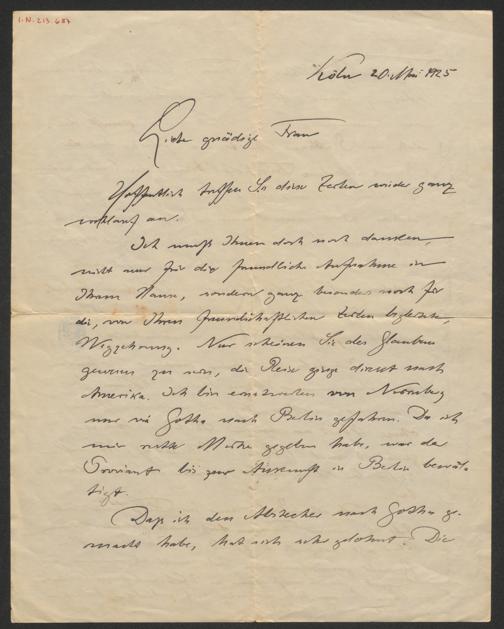 I.N. 213.687
Köln 20. Mai 1925
Liebe gnädige Frau
Hoffentlich treffen Sie diese Zeilen wieder ganz
wohlauf an.
Ich muß Ihnen doch noch danken,
nicht nur für die freundliche Aufnahme in
Ihrem Hause, sondern ganz besonders noch für
die, von Ihren freundschaftlichen Zeilen begleitete,
Wegzehrung. Nur scheinen Sie des Glaubens
gewesen zu sein, die Reise ginge direct nach
Amerika. Ich bin einstweilen von Nürnberg
nur via Gotha nach Berlin gefahren. Da ich
mir rechte Mühe gegeben habe, war der
Proviant bis zur Ankunft in Berlin bewäl-
tigt.
Daß ich den Abstecher nach Gotha ge-
macht habe, hat sich sehr gelohnt. Die